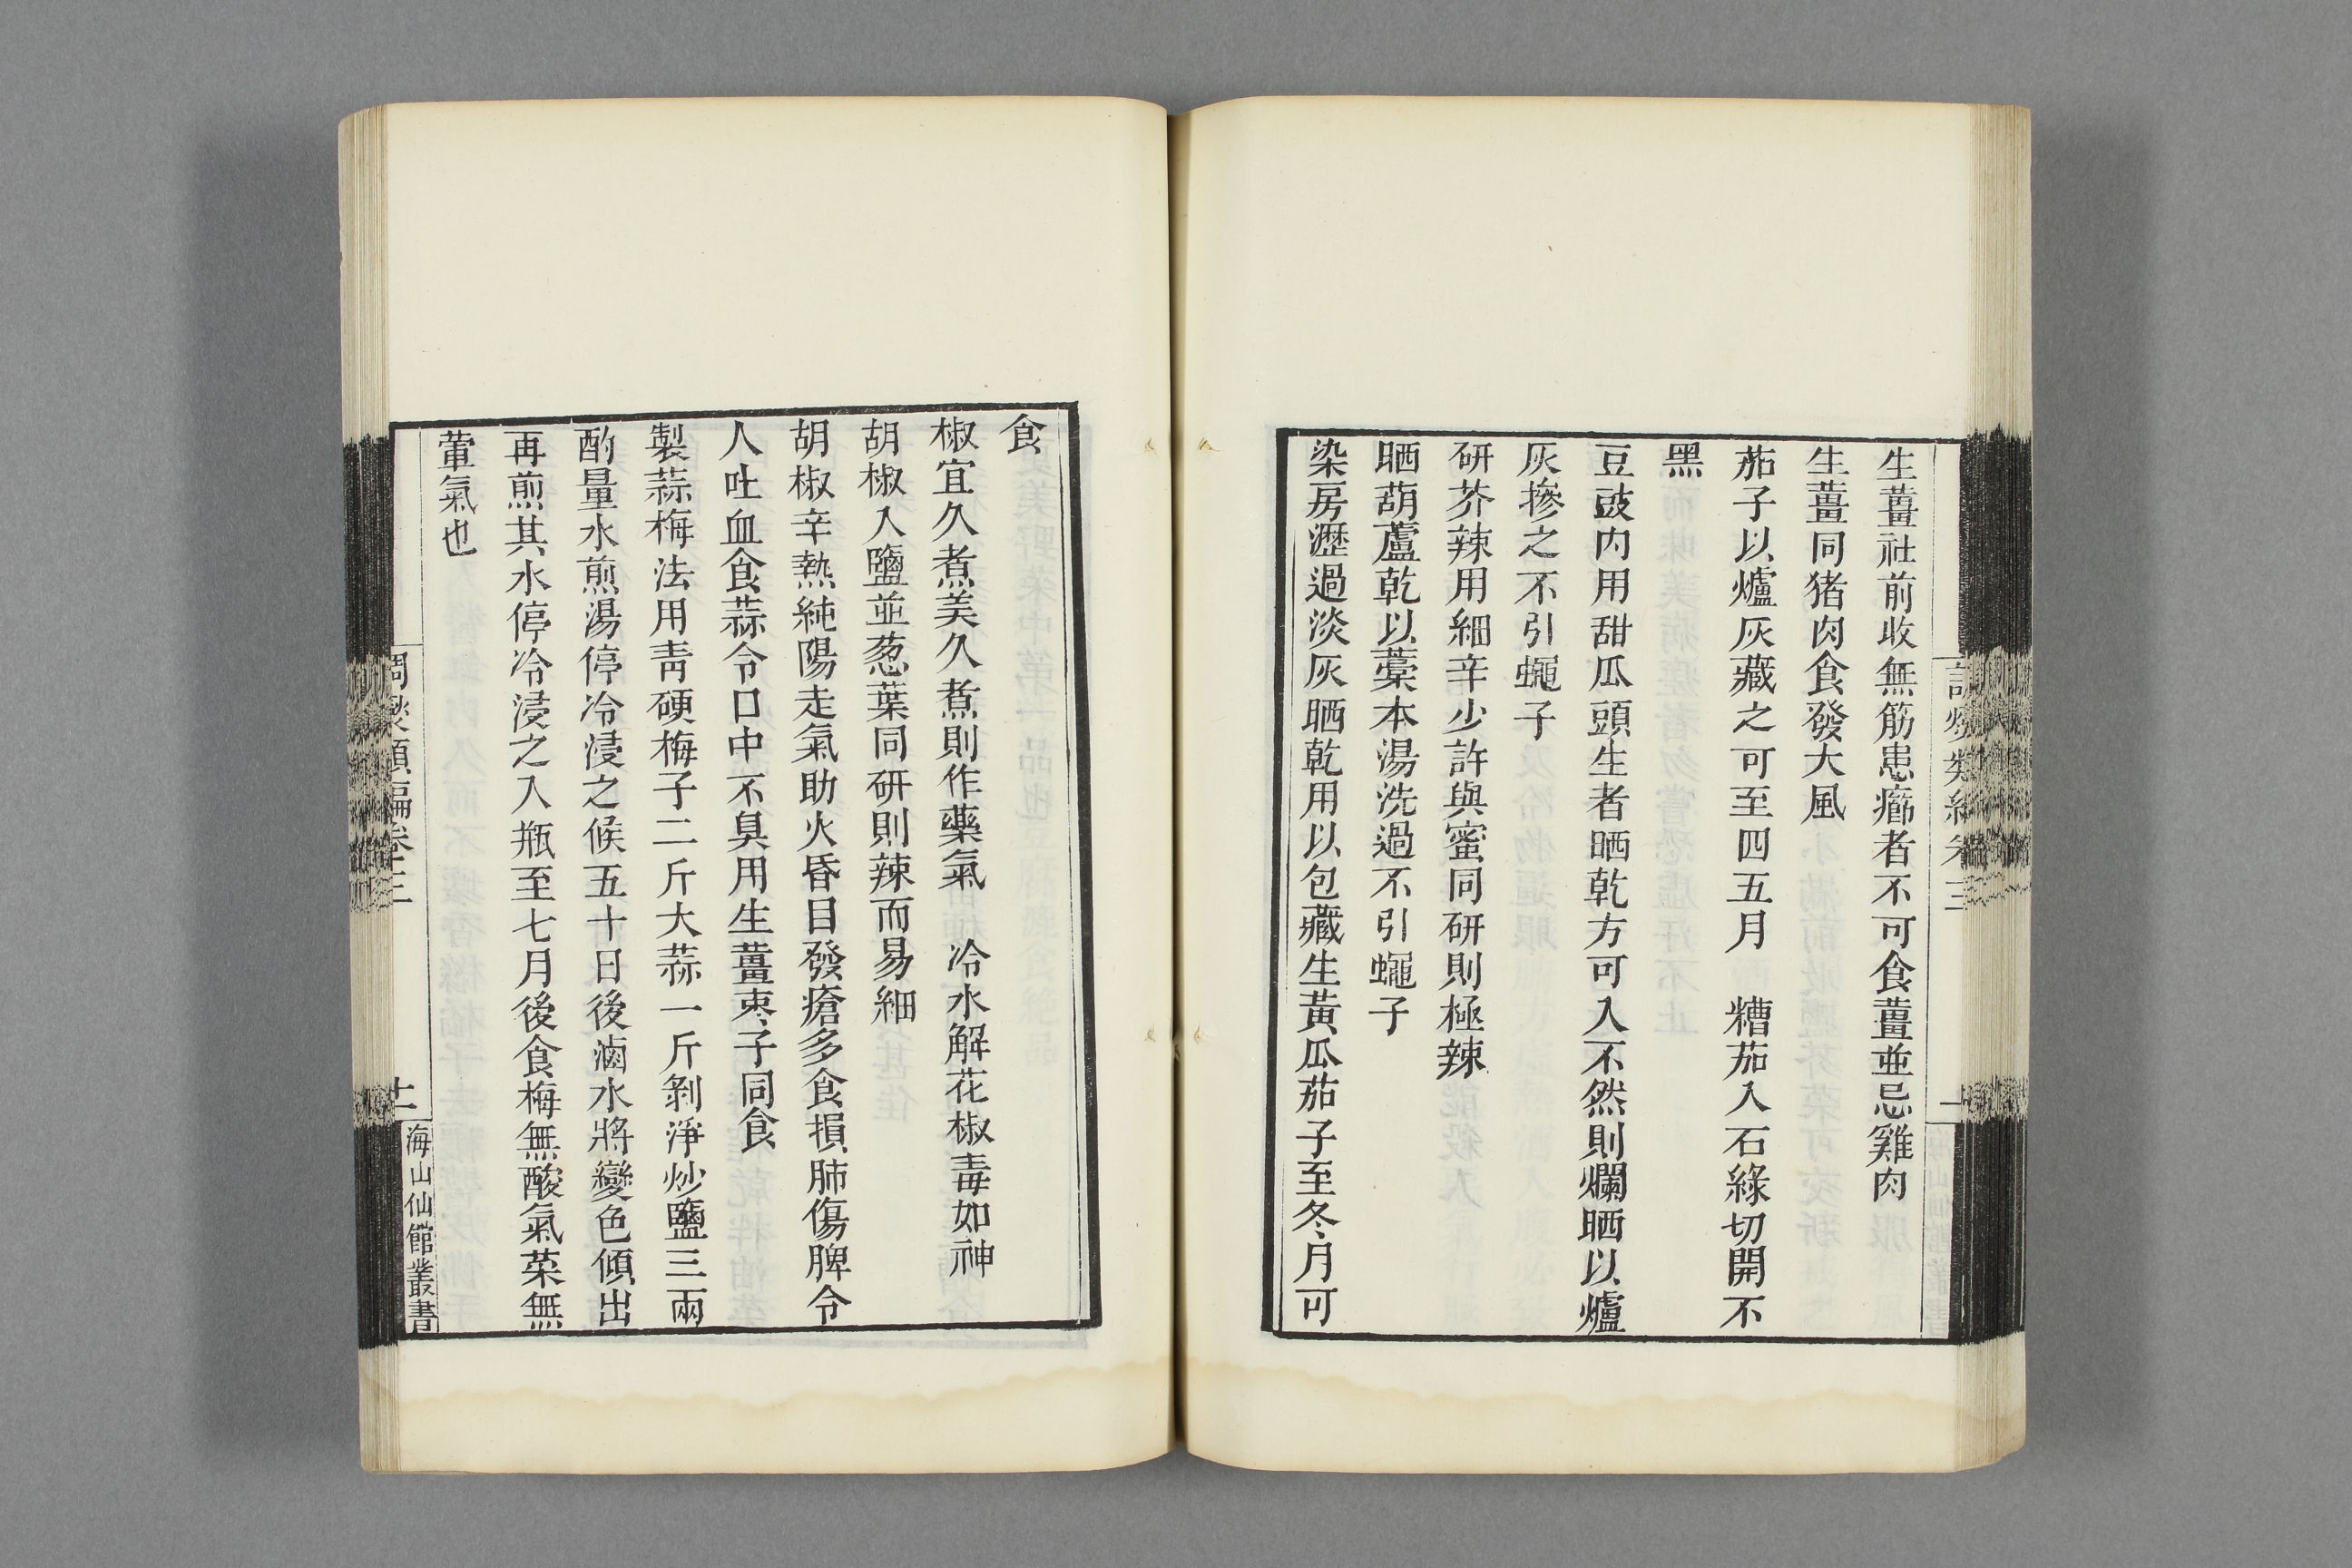 生薑社前收無筋患癤者不可食薑並忌雞肉
生薑同猪肉食發大風
茄子以爐灰藏之可至四五月　糟茄入石綠切開不
黑
豆豉内用甜瓜頭生者晒乾方可入不然則爛晒以爐
灰摻之不引蠅子
研芥辣用細辛少許與蜜同研則極辣
晒葫蘆乾以藁本湯洗過不引蠅子
染房瀝過淡灰晒乾用以包藏生黃瓜茄子至冬月可
食
椒宜久煮美久煮則作藥氣　冷水解花椒毒如神
胡椒入鹽並葱葉同研則辣而易細
胡椒辛熱純陽走氣助火昏目發瘡多食損肺傷脾令
人吐血食蒜令口中不臭用生薑棗子同食
製蒜梅法用靑硬梅子二斤大蒜一斤剝淨炒鹽三兩
酌量水煎湯停冷浸之候五十日後滷水將變色傾出
再煎其水停冷浸之入瓶至七月後食梅無酸氣菜無
葷氣也
調燮類編卷三
十一
海山仙館叢書